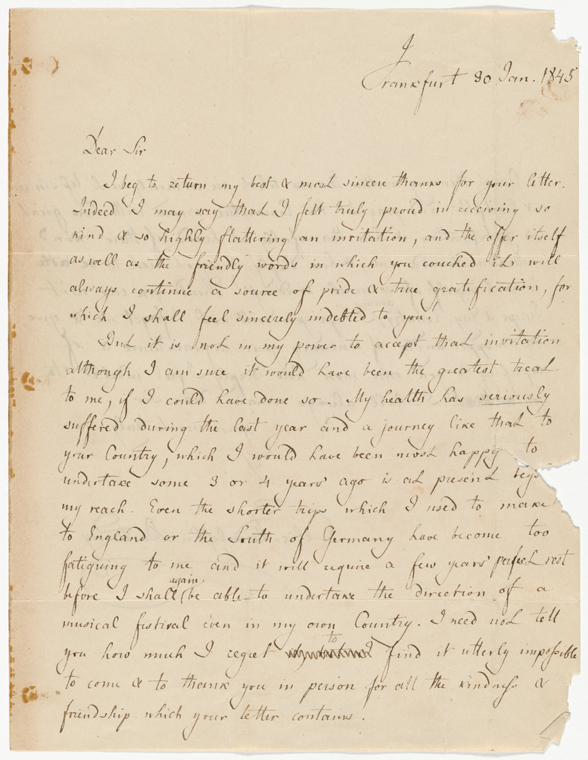 Frankfurt 30 Jan. 1845
Dear Sir
I beg to return my best & most sincere thanks for your letter.
Indeed I may say that I felt truly proud in receiving so
kind & so highly flattering an invitation, and the offer itself
as well as the friendly words in which you couched it will
always continue a source of pride & true gratification, for
which I shall feel sincerely indebted to you!
But it is not in my power to accept that invitation
although I am sure it would have been the greatest treat
to me, if I could have done so. My health has seriously
suffered during the last year and a journey like that to
your Country, which I would have been most happy to
undertake some 3 or 4 years' ago is at present bey
my reach. Even the shorter trips which I used to make
to England or the South of Germany have become too
fatiguing to me and it will require a few years' perfect rest
before I shall again be able to undertake the direction of a
musical festival even in my own Country. I need not tell
you how much I regret to find it utterly impossible
to come & to thank you in person for all the kindness &
friendship which your letter contains.